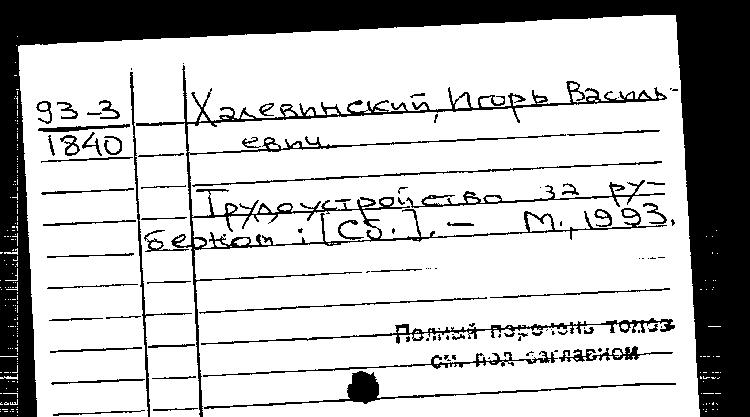 93-3
1840
Халевинский, Игорь Василь-
евич.
Трудоустройство за ру-
бежом : [Сб.]. — М., 1993.
Полный перечень
см. под заглавием